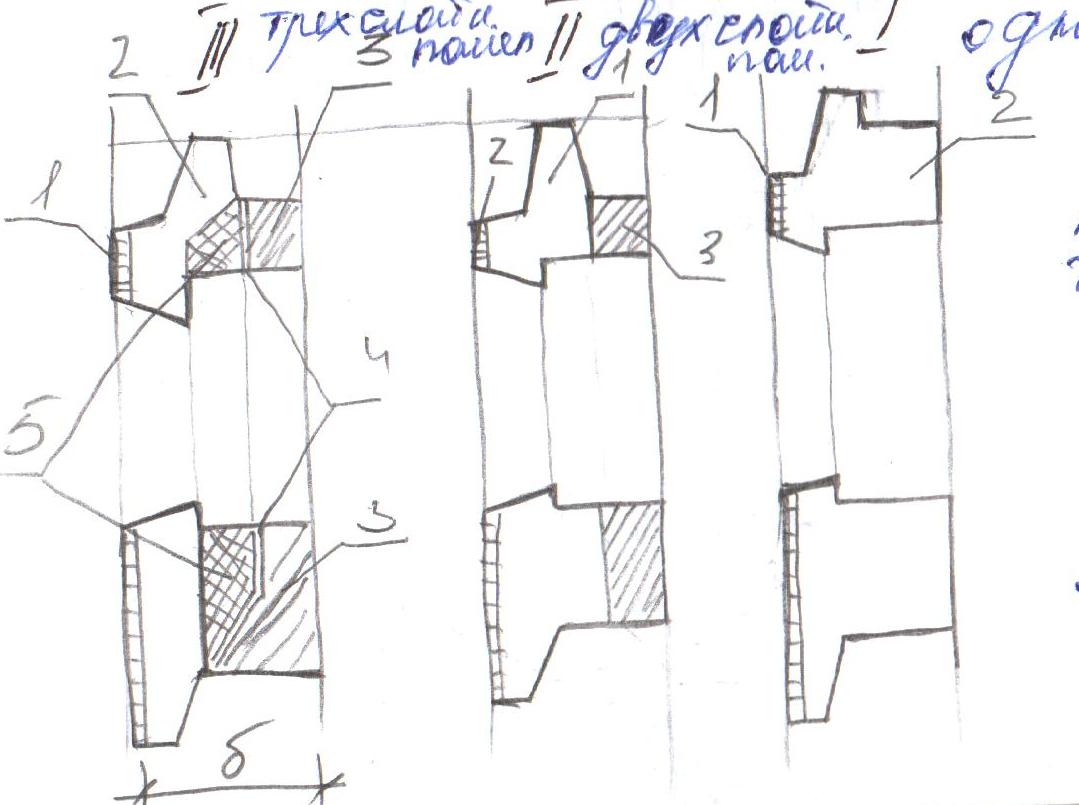 III трехслойн. II двухслойн. I одн
панел пан.
2 3 1 1 2
1 2 3
5 4
3
б